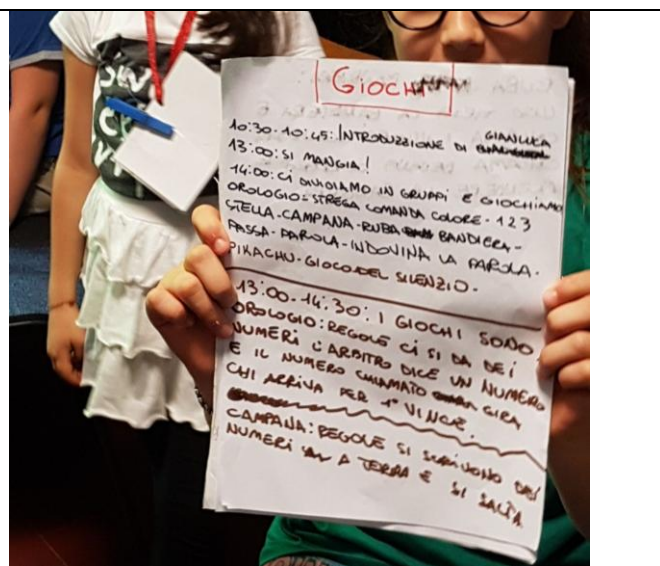 GIOCHI
10:30-10:45: INTRODUZZIONE DI GIANLUCA
13:00: SI MANGIA!
14:00: CI DIVIDIAMO IN GRUPPI E GIOCHIAMO
OROLOGIO-STREGA COMANDA COLORE-123
STELLA-CAMPANA-RUBA BANDIERA-
PASSA-PAROLA-INDOVINA LA PAROLA-
PIKACHU-GIOCO DEL SILENZIO-
13:00-14:30: I GIOCHI SONO
OROLOGIO: REGOLE CI SI DA DEI
NUMERI L'ARBITRO DICE UN NUMERO
E IL NUMERO CHIAMATO GIRA
CHI ARRIVA PER 1° VINCE.
CAMPANA: REGOLE SI SCRIVONO DEI
NUMERI A TERRA E SI SALTA